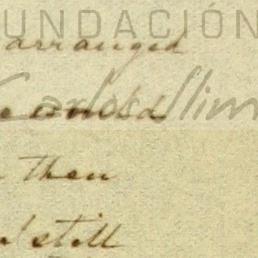 FUNDACIÓN
arranged
Carlos Slim
would
then
still